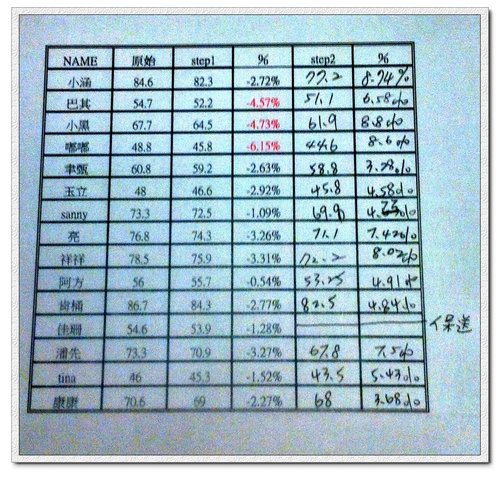 NAME 原始 step1 % step2 %
小涵 84.6 82.3 -2.72% 77.2 8.74%
巴其 54.7 52.2 -4.57% 51.1 6.58%
小黑 67.7 64.5 -4.73% 61.9 8.8%
嘟嘟 48.8 45.8 -6.15% 44.6 8.6%
聿甄 60.8 59.2 -2.63% 58.8 3.28%
玉立 48 46.6 -2.92% 45.8 4.58%
sanny 73.3 72.5 -1.09% 69.9
亮 76.8 74.3 -3.26% 71.1 7.42%
祥祥 78.5 75.9 -3.31% 72.2 8.02%
阿方 56 55.7 -0.54% 53.25 4.91%
肯桶 86.7 84.3 -2.77% 82.5 4.84%
佳珊 54.6 53.9 -1.28% 保送
潘先 73.3 70.9 -3.27% 67.8 7.5%
tina 46 45.3 -1.52% 43.5 5.43%
康康 70.6 69 -2.27% 68 3.68%